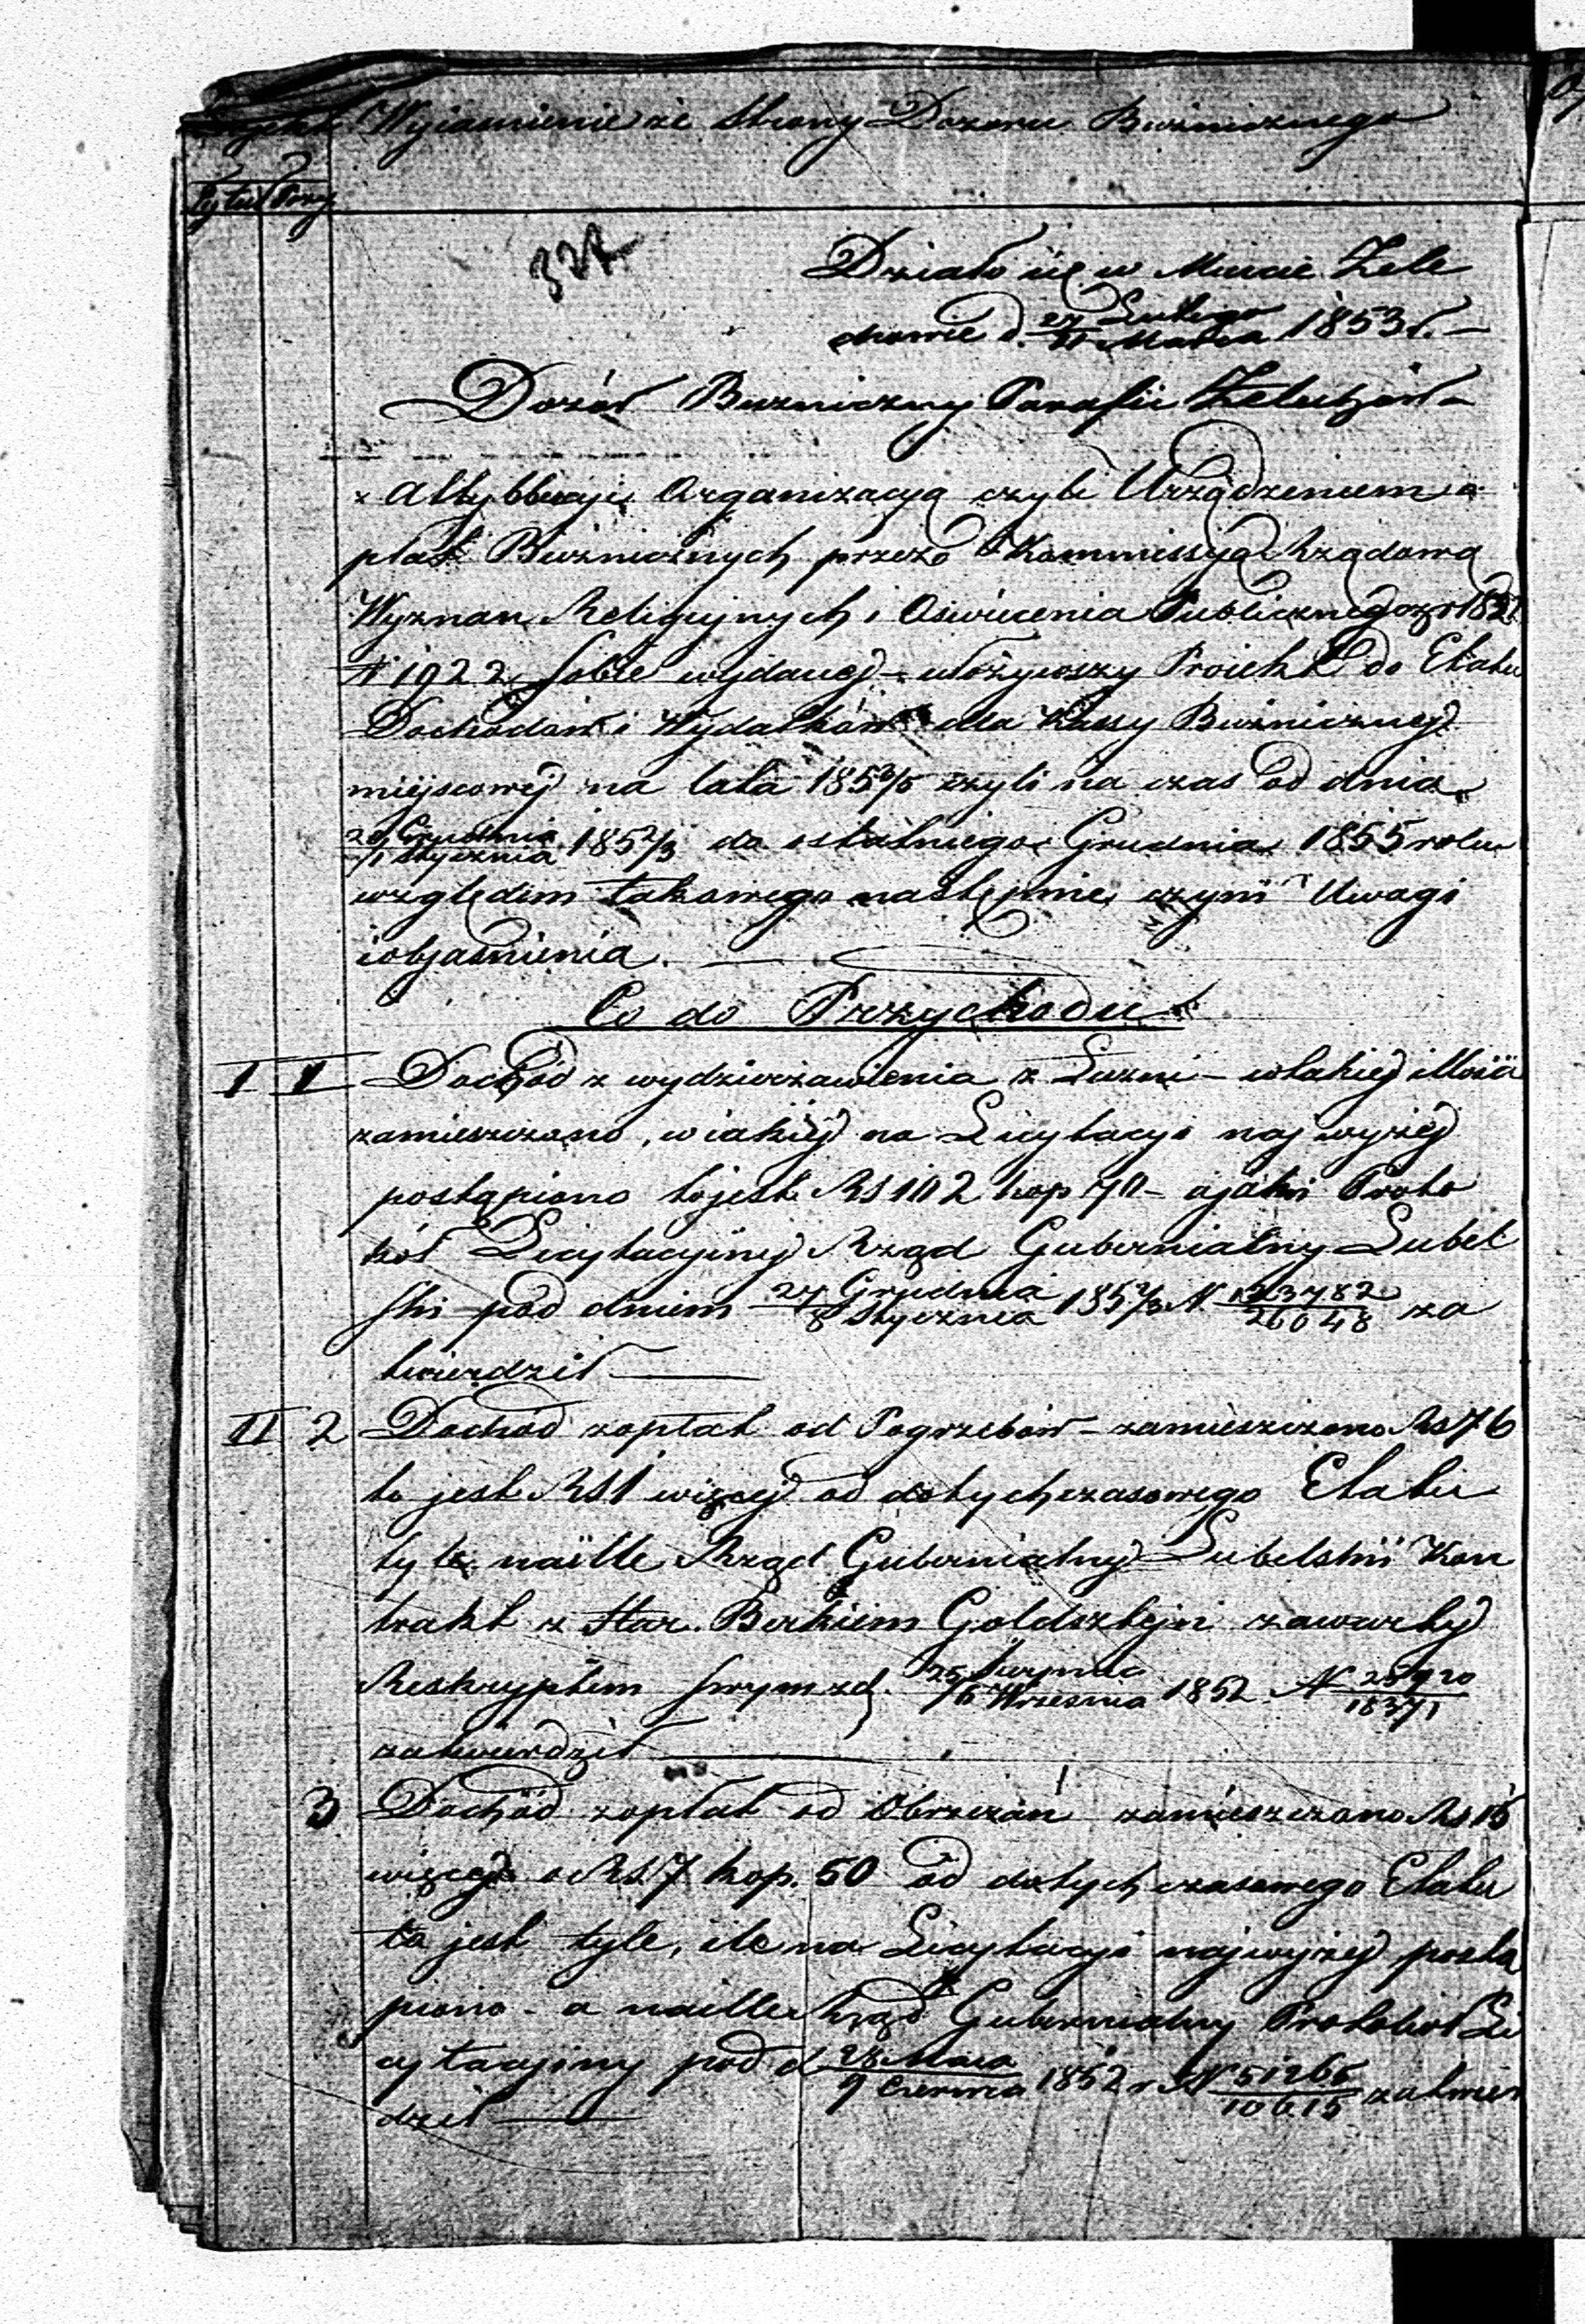 Wyjasnienie ze Strony Dozoru Bóżnicznego
Tytuł Pozy
327
Działo się w Mieście Żele
chowie d. 27 Lutego / 11 Marca 1853 r. —
Dozór Bużniczny Parafii Żelechów —
z Attybbucyi Organizacyą czyli Urządzeniem o
płat Bużnicznych przez Kommissyą Rządową
Wyznań Religijnych i Oświecenia Publicznego z r 182
N 1922 sobie wydanej - ułożywszy Proiekt do Etatu
Dochodów i Wydatków dla Kassy Bużnicznej
miejscowej na lata 1853/5 czyli na czas od dnia
20 Grudnia / 1 Stycznia 1852/3 do ostatniego Grudnia 1855 roku
względem takowego następnie czyni Uwagi
i objasnienia. —
Co do Przychodu
I 1 Dochód z wydzierżawienia z Łuzni - w takiej illości
zamieszczono, w iakiej na Licytacyi naj wyżej
postąpiono to jest RS 102 kop 70 - a jaki Proto
kół Licytacyiny Rząd Gubernialny Lubel
ski pod dniem 27 Grudnia / 8 Stycznia 1852/3 N 123782 / 26048 za
twierdził —
II 2 Dochód z opłat od Pogrzebów - zamieszczono Rs 76
to jest RS 1 więcej od dotychczasowego Etatu
tyle na ille Rząd Gubernialny Lubelski Kon
trakt z Star. Berkiem Goldsztejn zawarty
Reskryptem swym z d. 25 Sierpnia / 6 Września 1852 N 25920 / 18371
zatwierdził —
3 Dochód z opłat od Obrzezań zamieszczono Rs 15
więcej o RS 7 kop. 50 od dotychczasowego Etatu
to jest tyle, ile na Licytacyi najwyżej postą
piono - a na ille Rząd Gubernialny Protokół Li
cytacyiny pod d 28 Maja / 9 Czerwca 1852 r N 51265 / 10615 zatwier
dził —